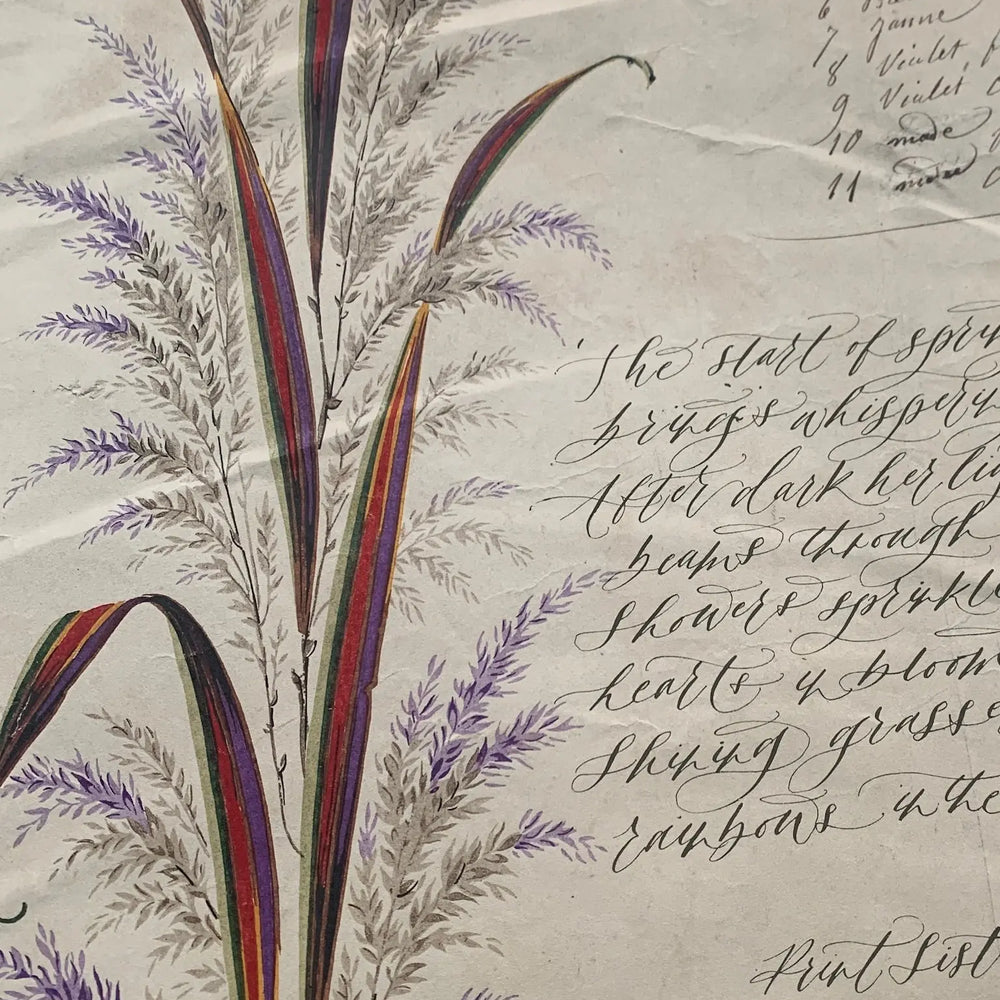 6
7 Janne
8 Violet,
9 Violet
10 made
11
The start of sprin
brings whisperin
After dark her lig
beams through
Showers sprinkl
hearts in bloom
Shining grasse
rainbows in the
Print List